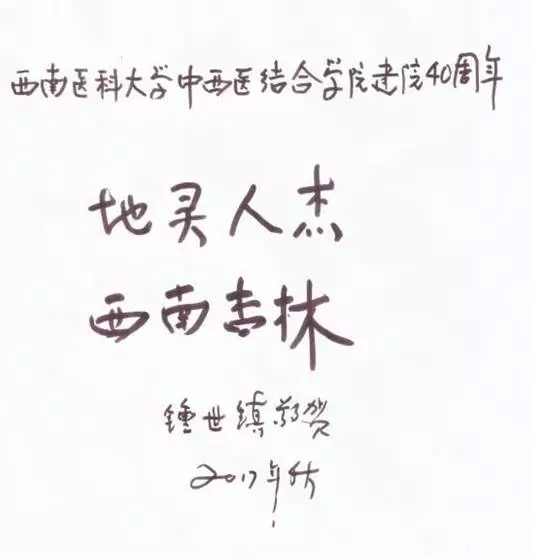 西南医科大学中西医结合学院建院40周年
地灵人杰
西南杏林
鍾世鎮敬贺
2017年秋